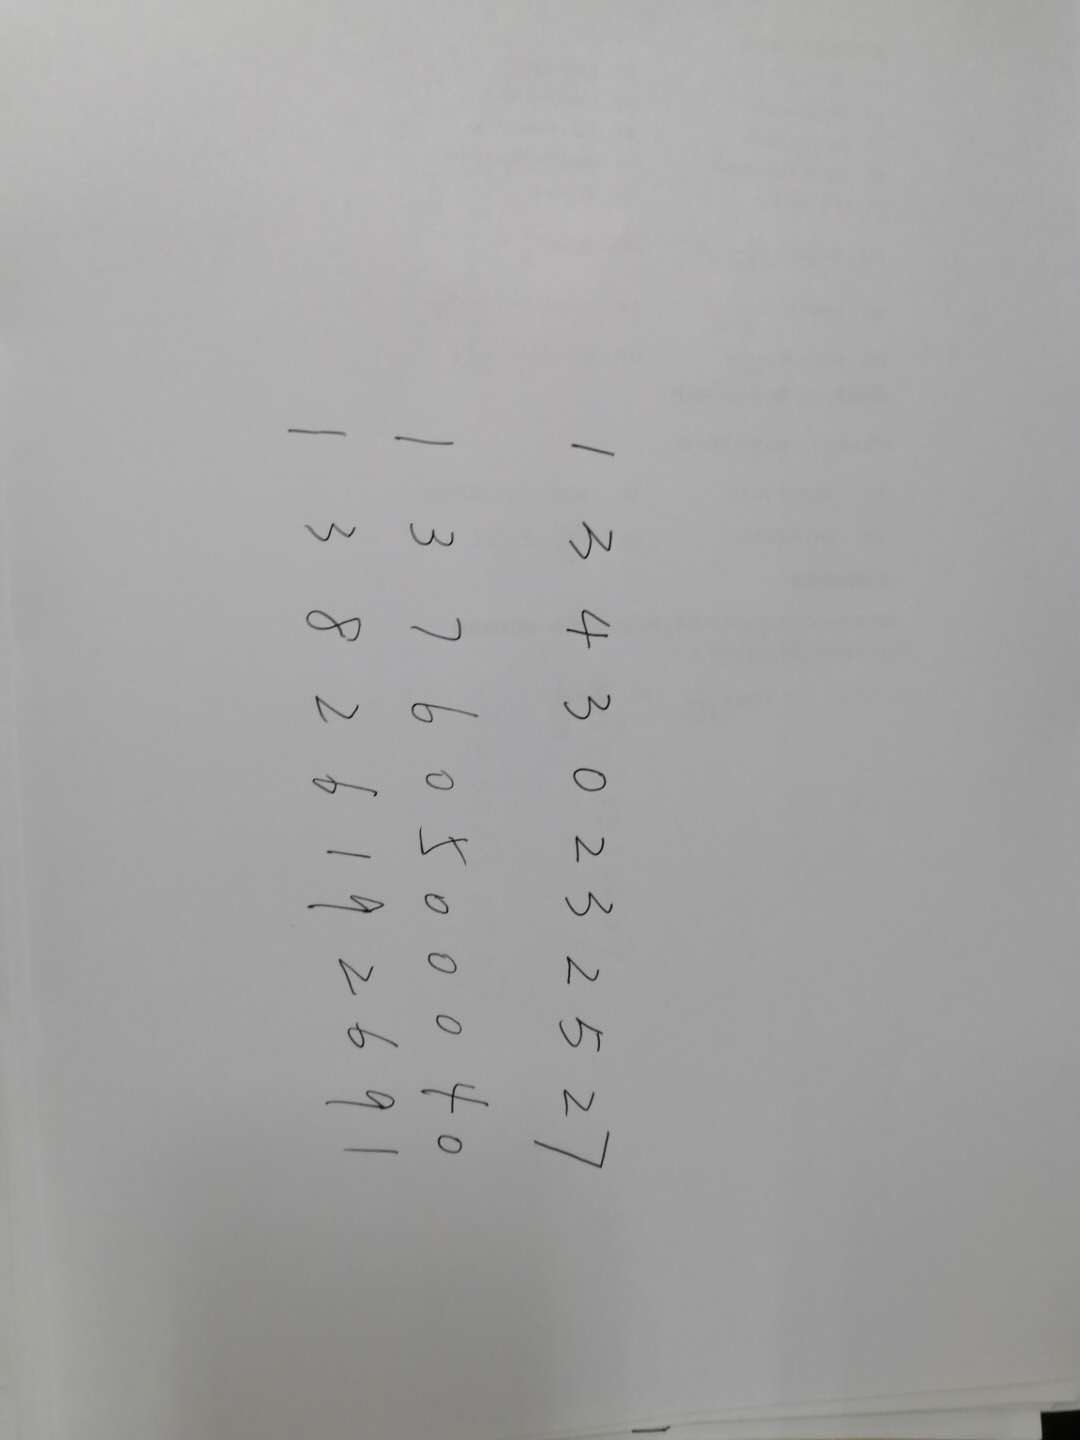 1 3 4 3 0 2 3 2 5 2 7
1 3 7 6 0 5 0 0 0 4 0
1 3 8 2 6 1 9 2 6 9 1